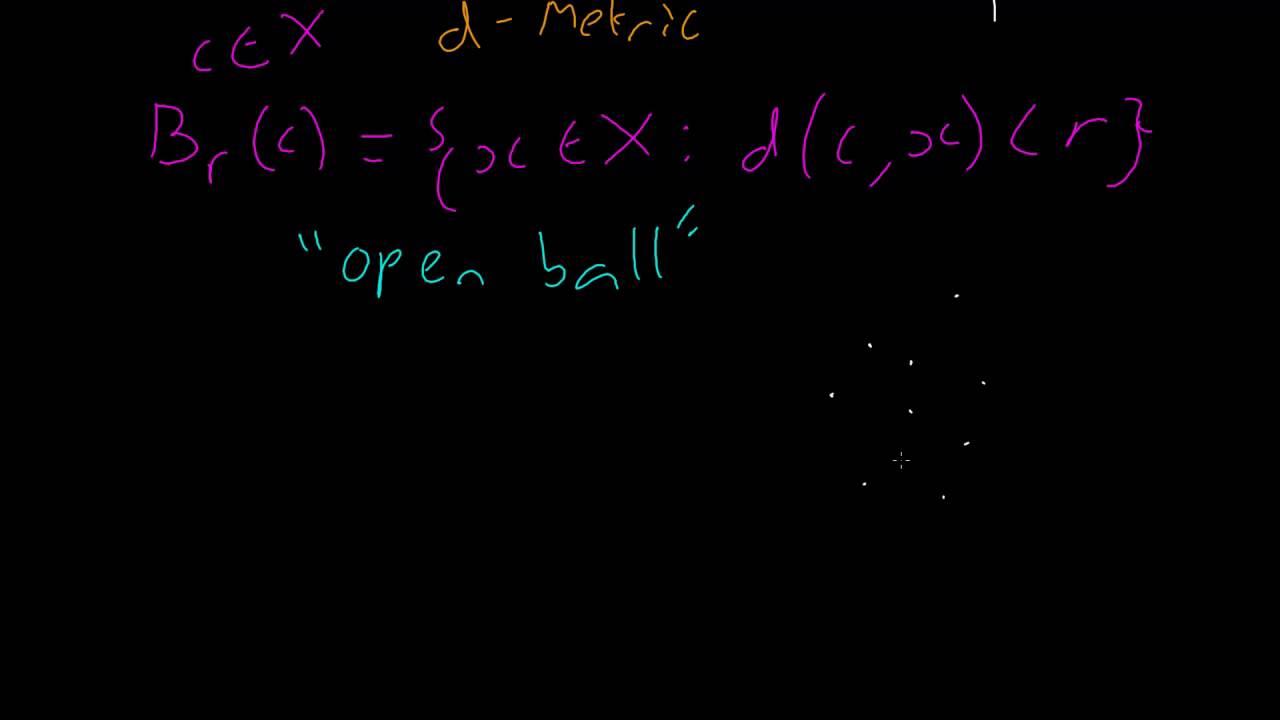 c ∈ X d - Metric
B_r(c) = {x ∈ X : d(c, x) < r}
"open ball"